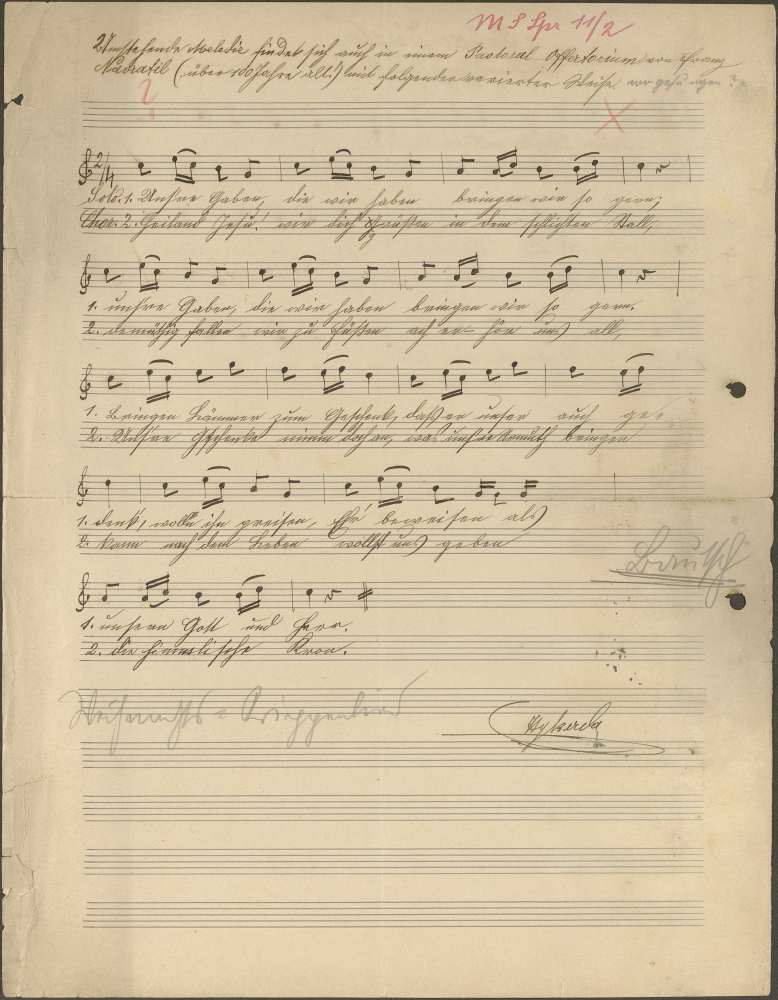 MS Spr 11/2
Umstehende Melodie findet sich auch in einem Pastoral Offertorium von Franz
Navratil (über 100 Jahre alt!) mit folgender variierter Weise vorgesungen?
?
X
2/4
Solo. 1. Unsre Gaben, die wir haben bringen wir so gern;
Chor. 2. Heiland Jesu! wir dich grüßen in dem schlichten Stall,
1. unsre Gaben, die wir haben bringen wir so gern.
2. demüthig fallen wir zu Füßen ach er-hör uns all,
1. Bringen Lämmer zum Geschenk, daß er unser auch ge-
2. Unsre Gschenke nimm doch an, was unsre Armuth bringen
1. denk, wolln ihn preisen, Ehr' beweisen als
2. kann nach dem Leben wollst uns geben
Bautsch
1. unsern Gott und Herr.
2. die himmlische Kron.
Weihnachts-Krippenlied